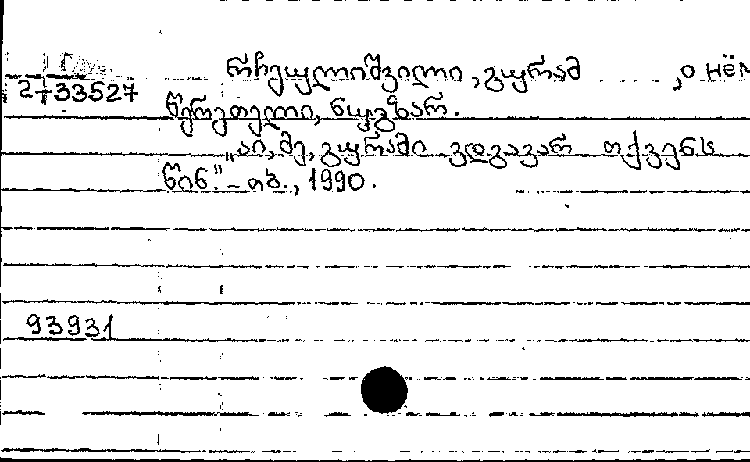 რჩეულიშვილი, გურამ , о нём
2-33527
წერეთელი, ნუგზარ.
"აი, მე, გურამი ვდგავარ თქვენს
წინ". – თბ., 1990.
93931